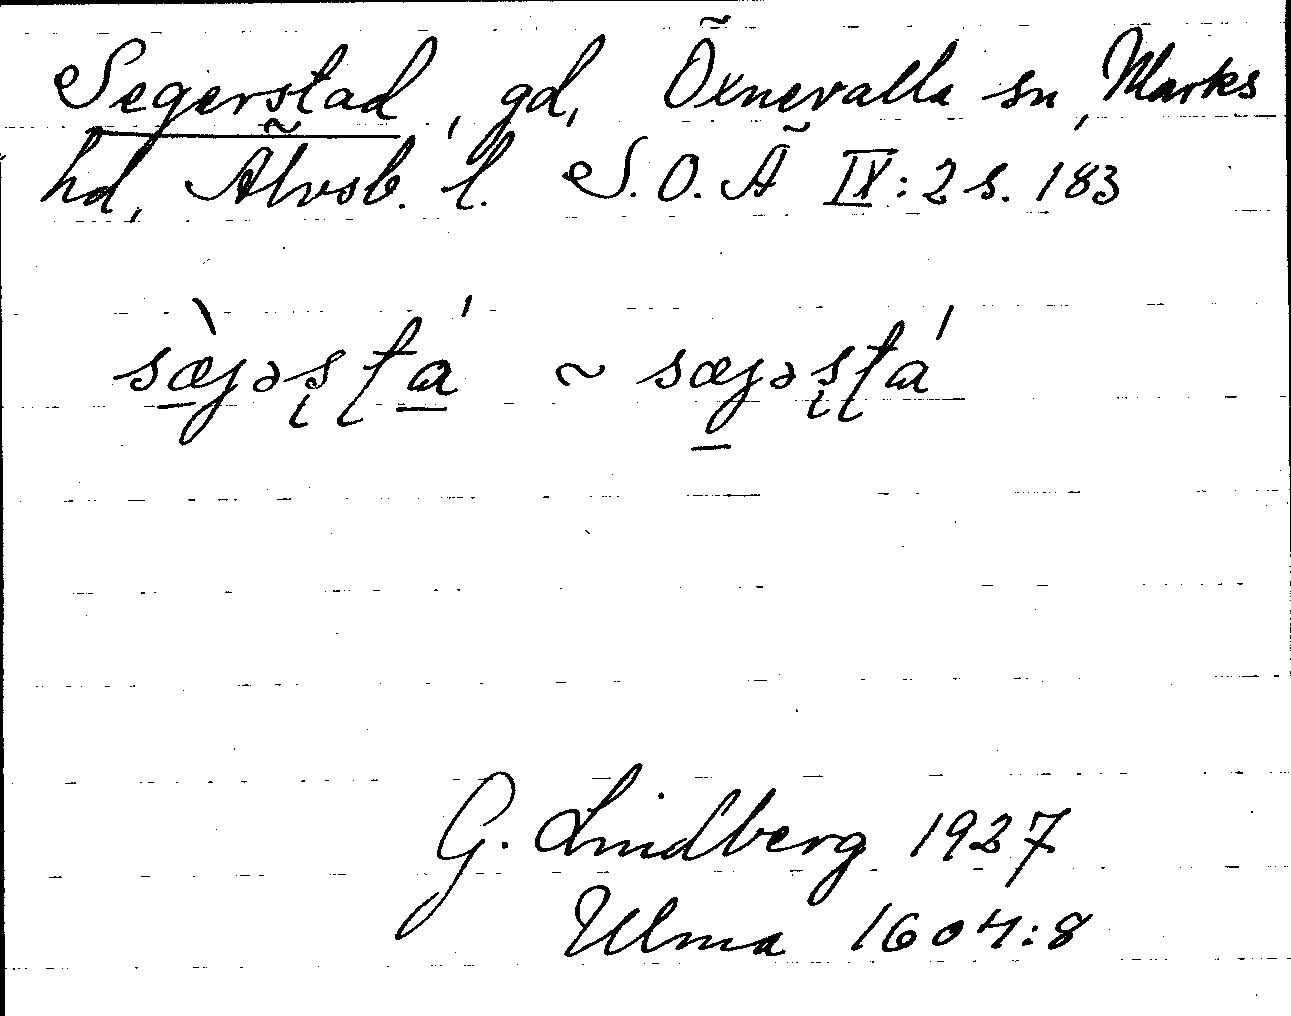 Segerstad, gd, Öxnevalla sn, Marks
hd, Älvsb. l. S.O.Ä IX: 2 s. 183
sæ̀jəʂʈɑ́ ~ sæjəʂʈɑ́
G. Lindberg 1927
Ulma 1604:8